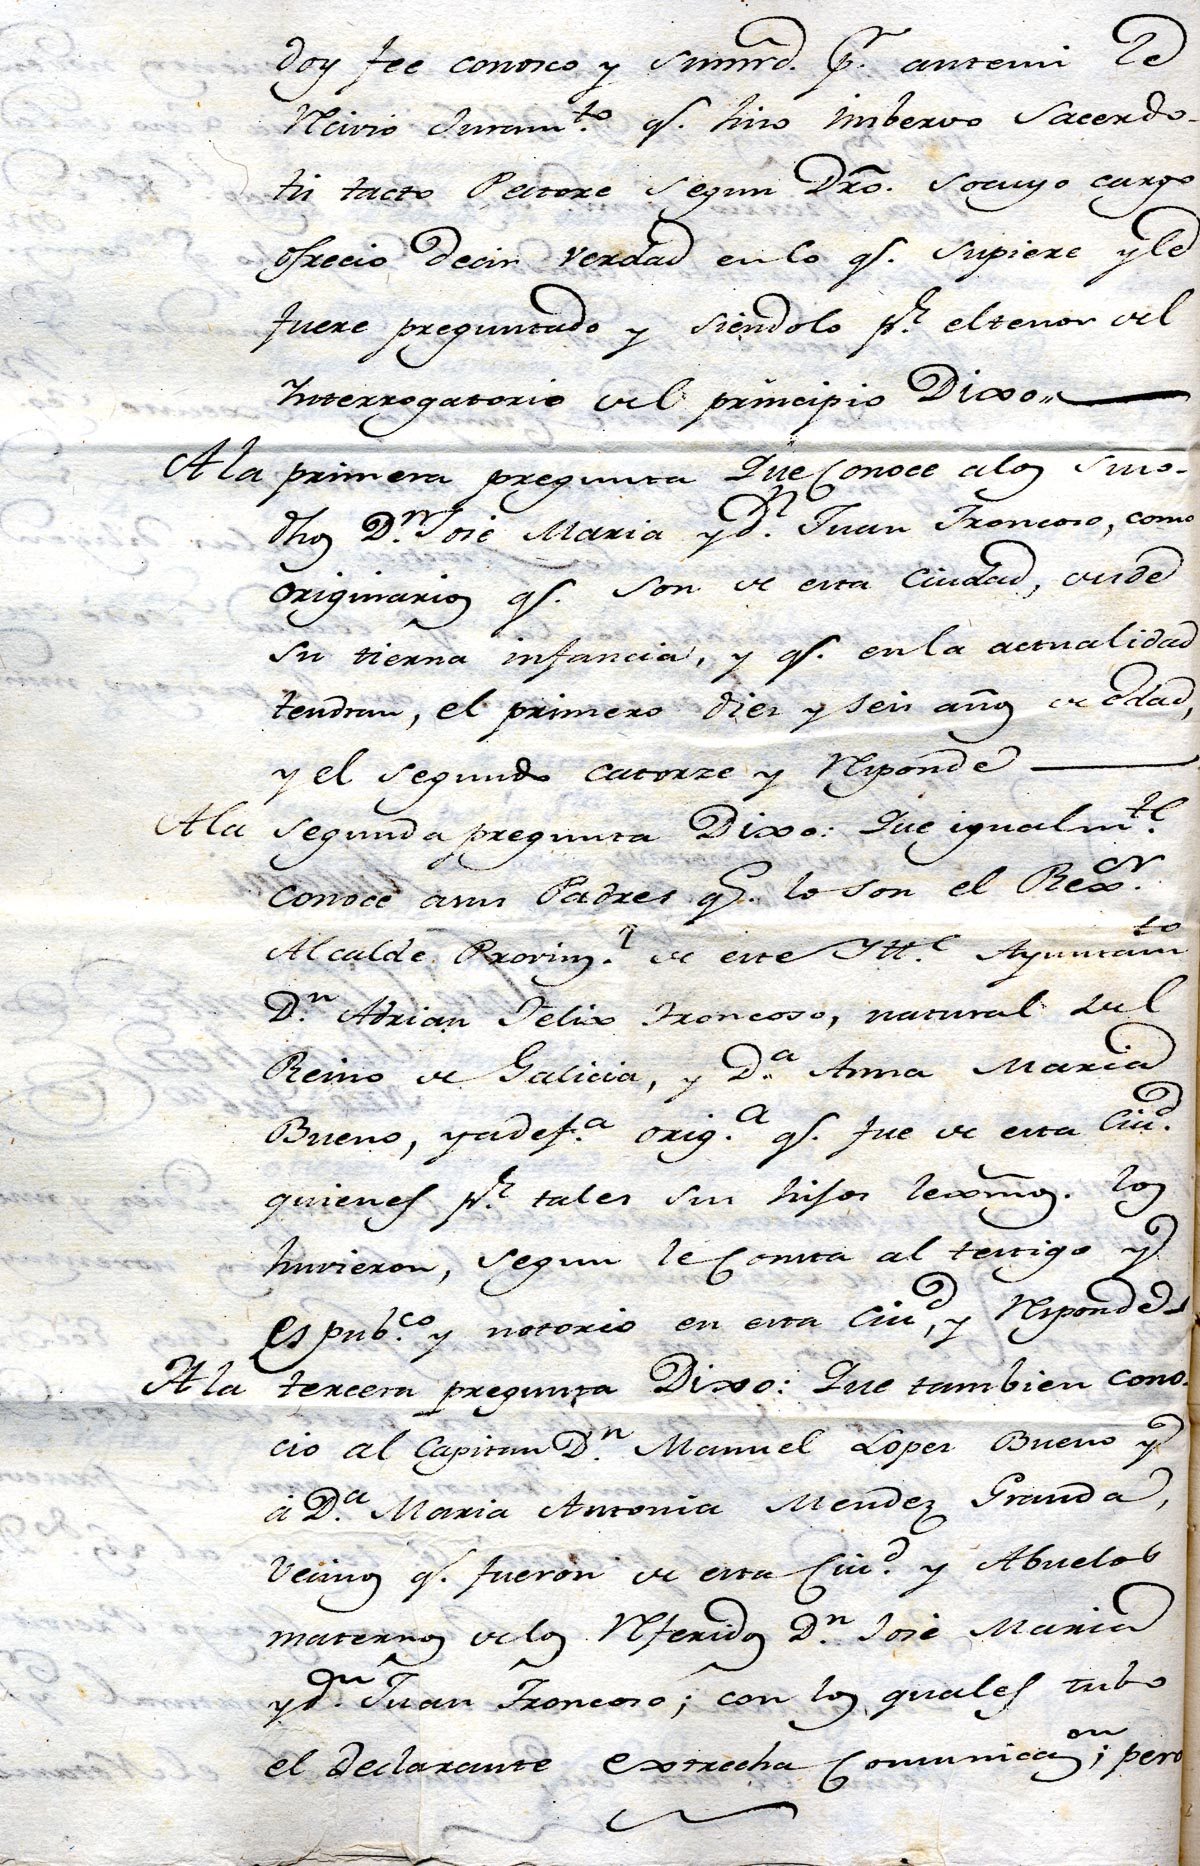 doy fee conosco y summrd. pr. antemi le
Recivio Juramto. qe. hiso inbervo Sacerdo-
tis tacto Pectore segun Dro. socuyo cargo
ofrecio decir verdad enlo qe. supiere yle
fuere preguntado y siendolo pr. eltenor del
Interrogatorio del principio Dixo,,
Ala primera pregunta Que Conoce alos suso-
dhos Dn. José Maria yDn. Juan Troncoso, como
originarios qe. son de esta Ciudad, desde
su tierna infancia, y qe. enla actualidad
tendran, el primero dies y seis años de edad,
y el segundo catorze y Responde
Ala segunda pregunta Dixo: Que igualmte.
conoce asus Padres qe. lo son el Rexor.
Alcalde Provinl. de este Ille. Ayuntamto
Dn. Adrian Felix Troncoso, natural del
Reino de Galicia, y Da. Anna Maria
Bueno, yadefa. origa. qe. fue de esta Ciud.
quienes pr. tales sus hijos lexmos. los
huvieron, segun le Consta al testigo y
es pubco. y notorio en esta Ciud, y Responde
Ala tercera pregunta Dixo: Que tambien cono-
cio al Capitan Dn. Manuel Lopes Bueno y
á Da. Maria Antonia Mendez Granda,
vecinos qe. fueron de esta Ciud. y Abuelos
maternos delos Referidos Dn. José Maria
yDn. Juan Troncoso; con los quales tubo
el declarante extrecha Comunicaon; pero